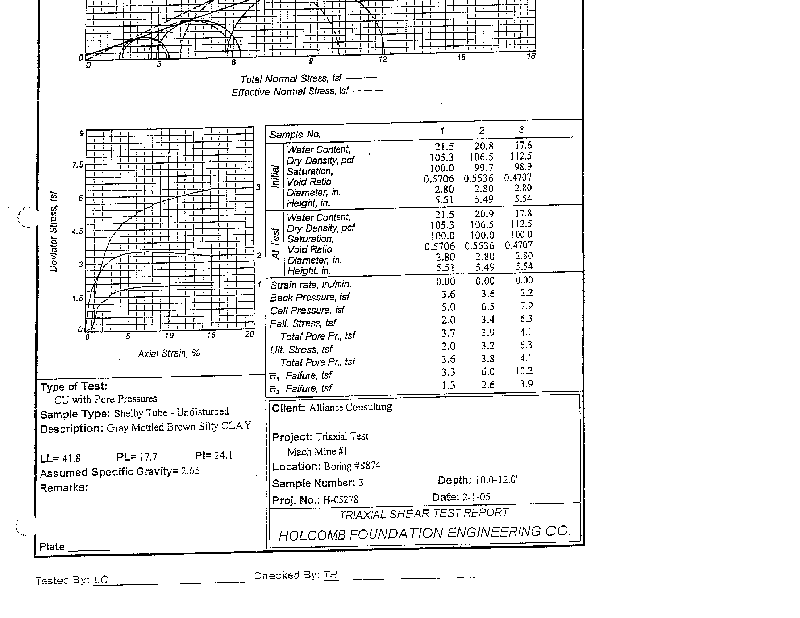 0 3 6 9 12 15 18
Total Normal Stress, tsf ———
Effective Normal Stress, tsf - - - -
Deviator Stress, tsf
9
7.5
6
4.5
3
1.5
0
0 5 10 15 20
Axial Strain, %
3
2
1
Sample No. 1 2 3
Initial
Water Content, 21.5 20.8 17.6
Dry Density, pcf 105.3 106.5 112.5
Saturation, 100.0 99.7 98.9
Void Ratio 0.5706 0.5536 0.4707
Diameter, in. 2.80 2.80 2.80
Height, in. 5.51 5.49 5.54
At Test
Water Content, 21.5 20.9 17.8
Dry Density, pcf 105.3 106.5 112.5
Saturation, 100.0 100.0 100.0
Void Ratio 0.5706 0.5536 0.4707
Diameter, in. 2.80 2.80 2.80
Height, in. 5.51 5.49 5.54
Strain rate, in./min. 0.00 0.00 0.00
Back Pressure, tsf 3.6 3.6
Cell Pressure, tsf 5.0 6.5
Fail. Stress, tsf 2.0 3.4 6.3
Total Pore Pr., tsf 3.7 3.9
Ult. Stress, tsf 2.0 3.2 6.3
Total Pore Pr., tsf 3.6 3.8
σ̅₁ Failure, tsf 3.3 6.0 10.2
σ̅₃ Failure, tsf 1.3 2.6 3.9
Type of Test:
CU with Pore Pressures
Sample Type: Shelby Tube - Undisturbed
Description: Gray Mottled Brown Silty CLAY
LL= 41.8 PL= 17.7 PI= 24.1
Assumed Specific Gravity= 2.65
Remarks:
Plate
Client: Alliance Consulting
Project: Triaxial Test
Mach Mine #1
Location: Boring #5874
Sample Number: 3 Depth: 10.0-12.0'
Proj. No.: H-05278 Date: 2-1-05
TRIAXIAL SHEAR TEST REPORT
HOLCOMB FOUNDATION ENGINEERING CO.
Tested By: LC Checked By: TH